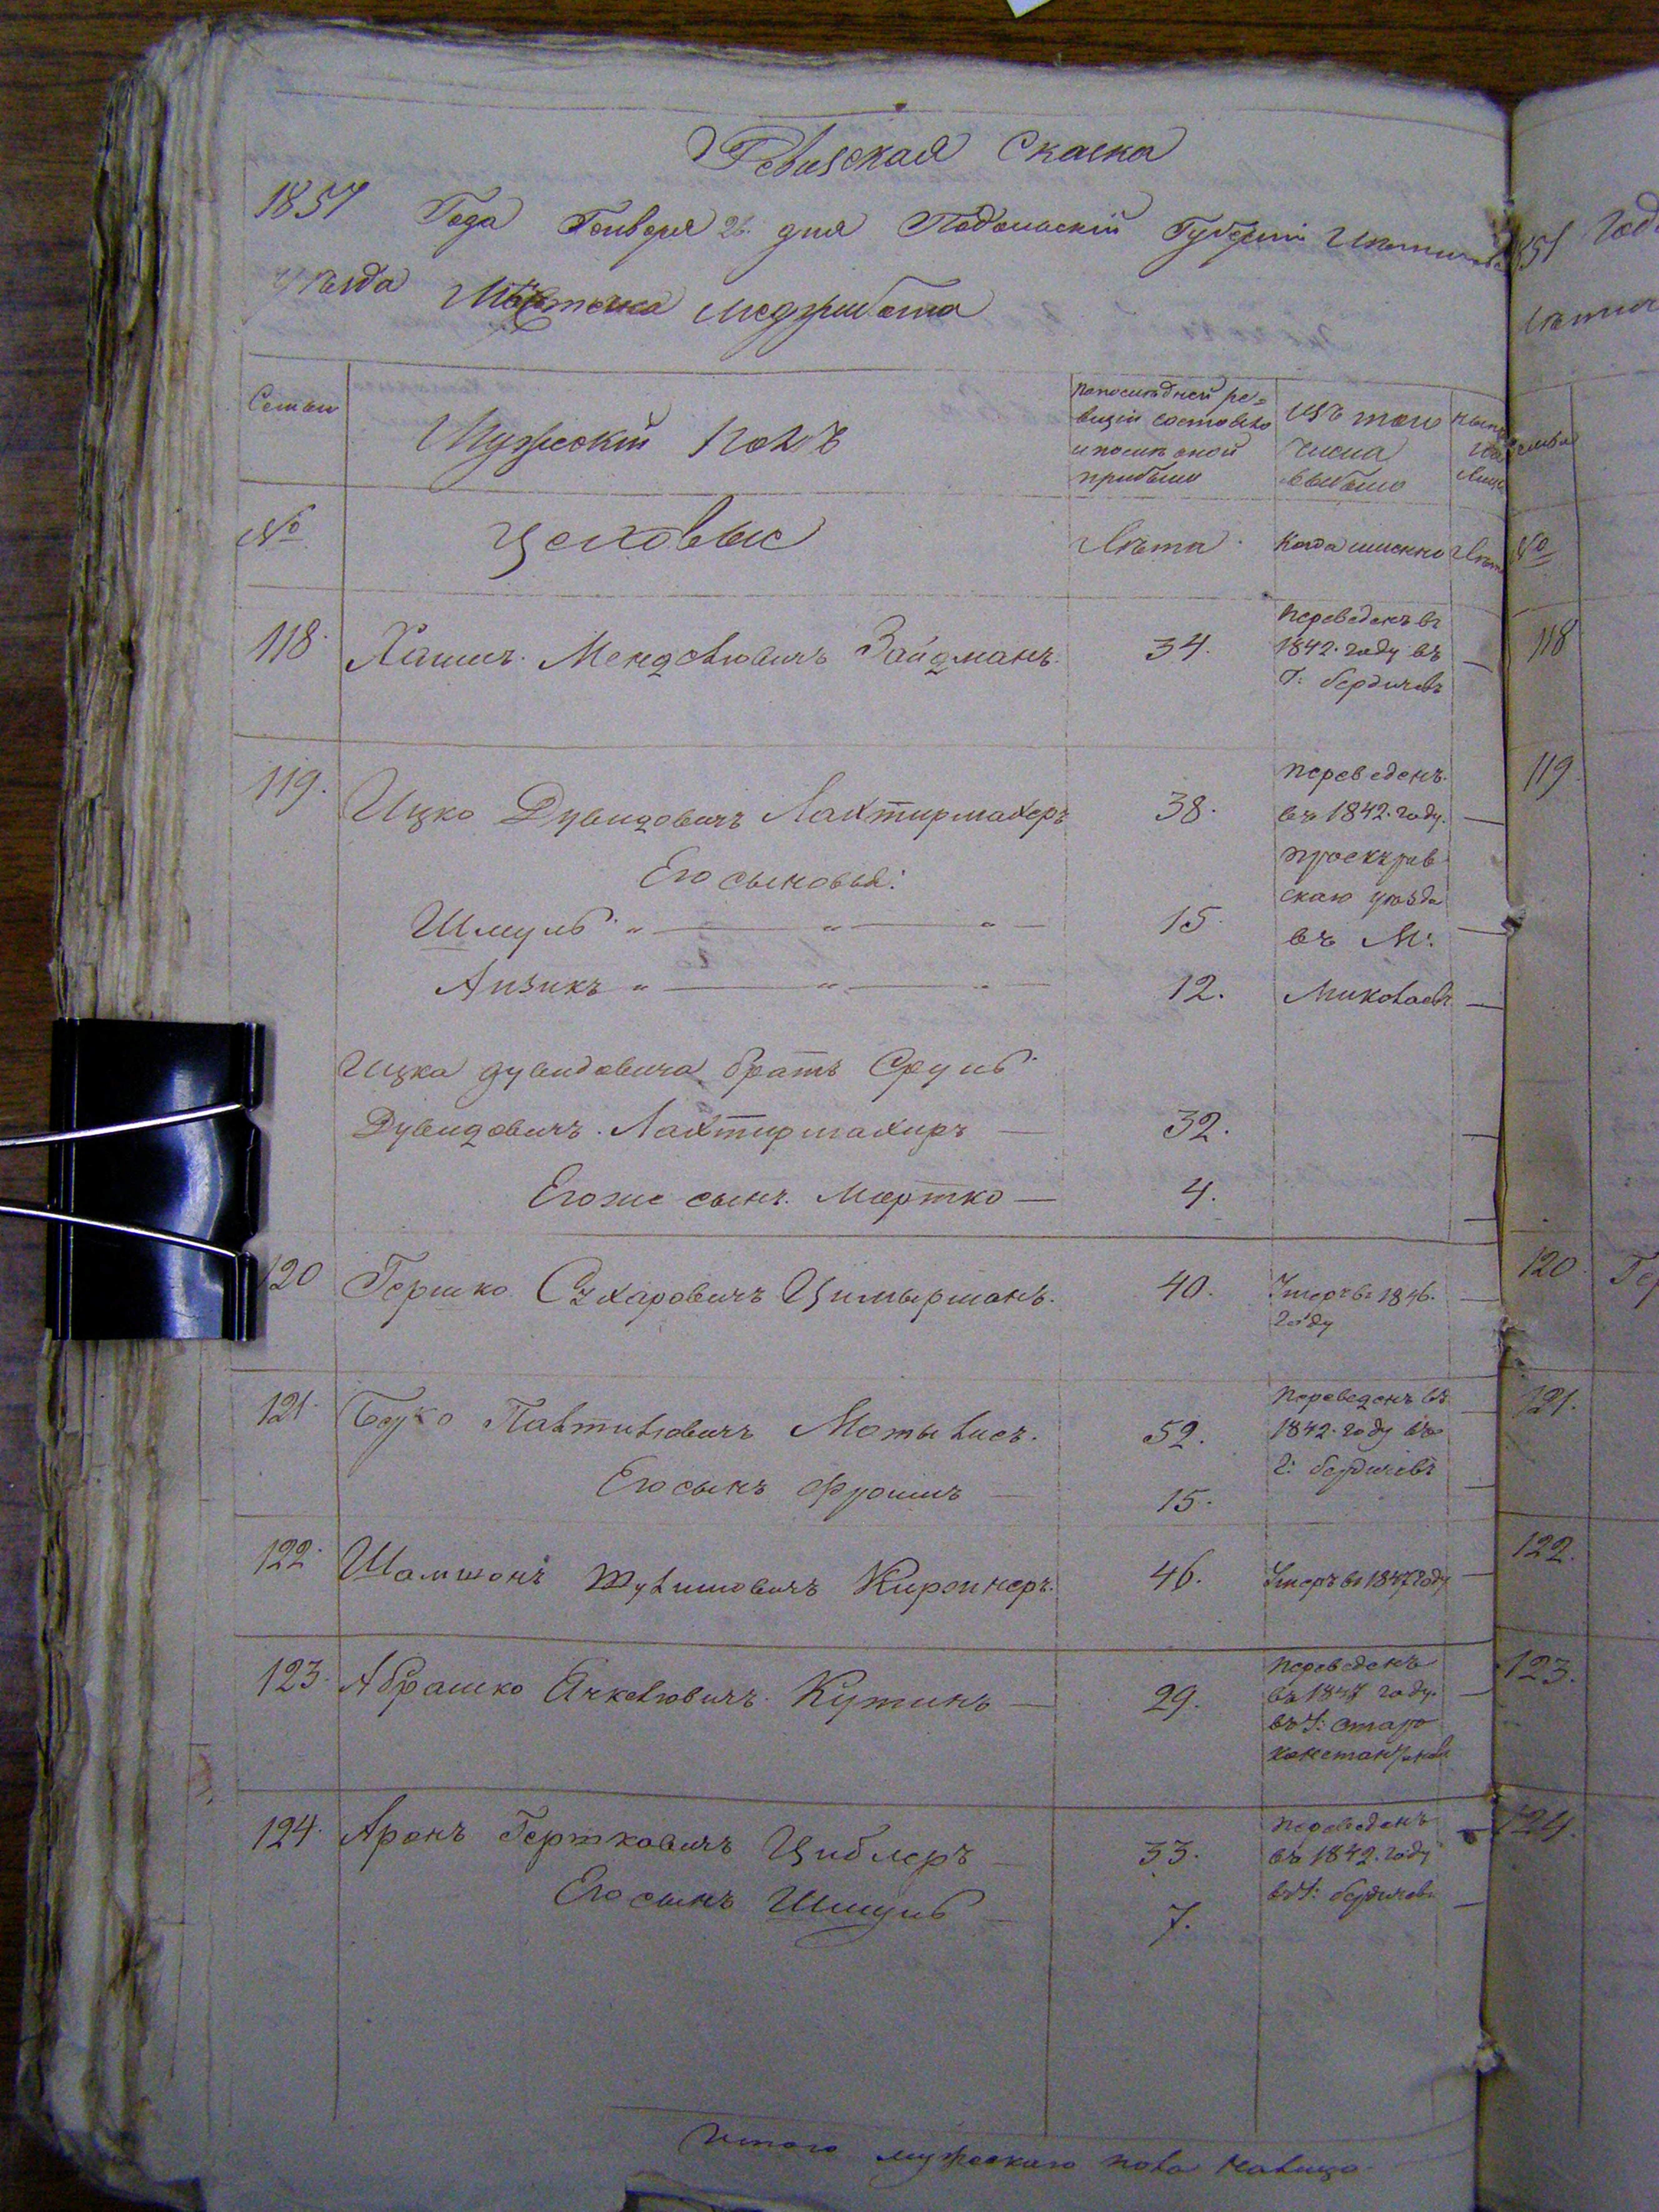 Ревизская Сказка
1851 Года Генваря 26. дня Подольскій Губерніи
уѣзда Мѣстечка Меджибожа
Семьи
Мужескій полъ
По послѣдней ре=
визіи состояло
и послѣ оной
прибыло
Изъ того
числа
выбыло
№
цеховые
Лѣта
Когда именно
Лѣта
118. Хаимъ Менделіовичъ Зайдманъ. 34.
Переведенъ въ
1842. году въ
Г: бердичевъ
119. Ицко Дувидовичъ Лахтирмахеръ 38.
Переведенъ
въ 1842. году.
проскуров
скаго уѣзда
въ М:
Николаевъ
Его сыновья:
Шмуль " — " — " — 15
Аизикъ " — " — " — 12.
Ицка дувидовича братъ Сруль
Дувидовичъ Лахтирмахиръ — 32.
Его же сынъ Мортко — 4.
120 Гершко Сухаровичъ Цимырманъ. 40.
Умеръ въ 1846.
году
121. Берко Палтиліовичъ Мотылисъ. 52.
Переведенъ въ
1842. году въ
г: бердичевъ
Его сынъ Фроимъ — 15.
122. Шамшонъ Шулимовичъ Киржнеръ. 46.
Умеръ въ 1847 году
123. Абрашко Янкеліовичъ Кутинъ — 29.
Переведенъ
въ 1847 году.
въ Г: старо
константинов
124. Аронъ Гершковичъ Циблеръ — 33.
Переведенъ
въ 1842. году
въ Г: бердичевъ
Его сынъ Шмуль — 7.
Итого мужескаго пола налицо
1851 Года
№
118
119
120. Гер
121.
122.
123.
124.